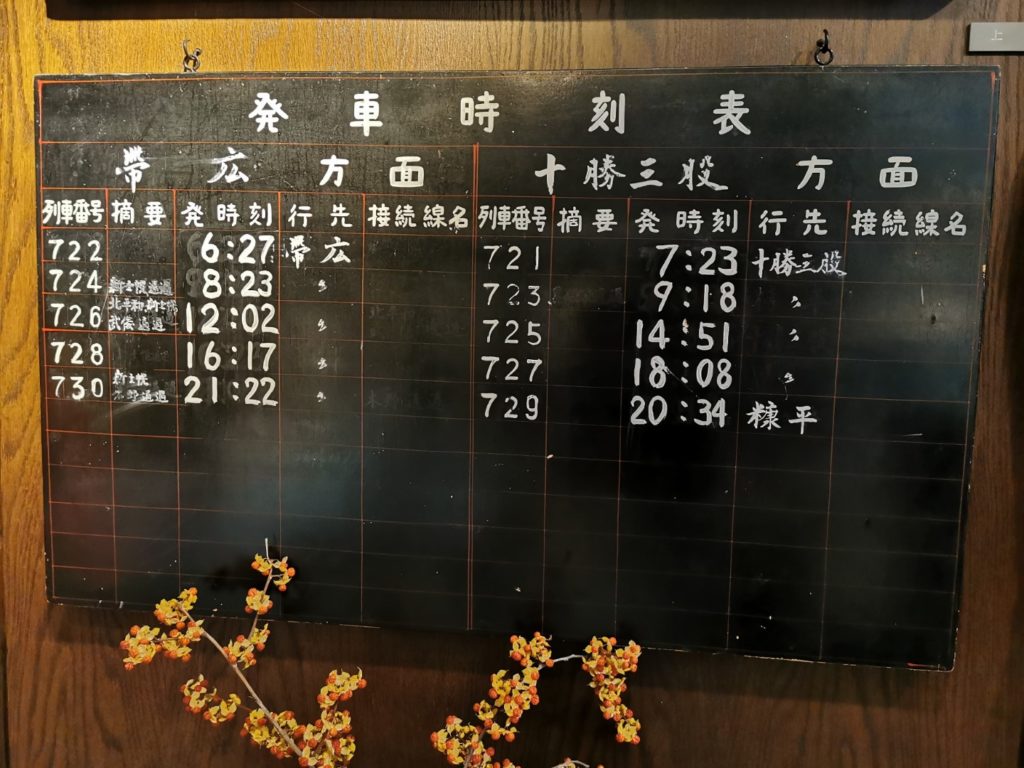 上
発車時刻表
帯広方面 十勝三股方面
列車番号 摘要 発時刻 行先 接続線名 列車番号 摘要 発時刻 行先 接続線名
722 6:27 帯広 721 7:23 十勝三股
724 新士幌通過 8:23 〃 723 9:18 〃
726 北平和、新士幌 武儀通過 12:02 〃 725 14:51 〃
728 16:17 〃 727 18:08 〃
730 新士幌 通過 21:22 〃 729 20:34 糠平